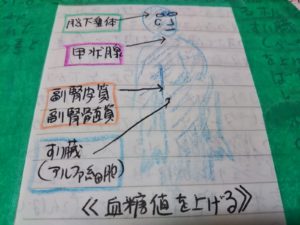 脳下垂体
甲状腺
副腎皮質
副腎髄質
すい臓
(アルファ細胞)
《血糖値を上げる》